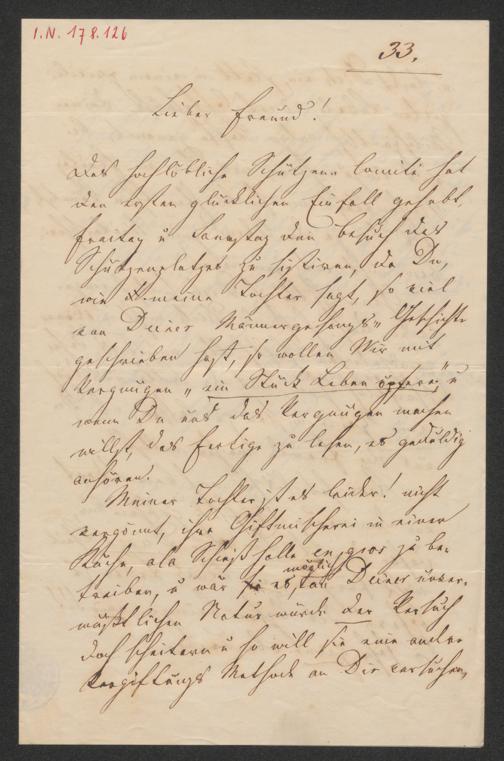 I.N. 178.126
33.
Lieber Freund!
Das hochlöbliche Schützen Comité hat
den ersten glücklichen Einfall gehabt,
Freitag u Samstag den Besuch des
Schützenplatzes zu sistiren, da Du,
wie meine Tochter sagt, so viel
von Deiner Männergesangs „ Geschichte
geschrieben hast, so wollen Wir mit
Vergnügen „ ein Stück Leben opfern" u
wenn Du uns das Vergnügen machen
willst, das Fertige zu lesen, es geduldig
anhören.
Meiner Tochter ist es leider! nicht
vergönnt, ihre Giftmischerei in einer
Küche, als Schießhalle en gros zu be-
treiben, u wär es, möglich Deiner unver-
wüstlichen Natur würde der Versuch
doch scheitern u so will sie eine andre
Vergiftungs Methode an Dir versuchen,